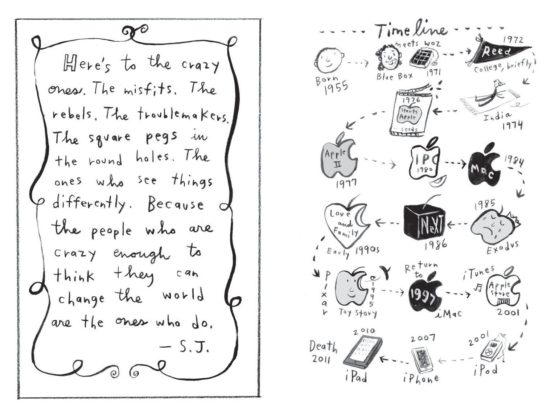 Here's to the crazy
ones. The misfits. The
rebels. The troublemakers.
The square pegs in
the round holes. The
ones who see things
differently. Because
the people who are
crazy enough to
think they can
change the world
are the ones who do.
— S.J.
Timeline
Born
1955
meets woz
Blue Box
1971
1972
Reed
College, briefly
India
1974
1976
Starts
Apple
seeds
Apple
II
1977
IPO
1980
Mac
1984
1985
Exodus
NeXT
1986
Love
and
Family
Early 1990s
Pixar
1995
Toy Story
Return
to
1997
iMac
iTunes
Apple
Store
2001
2001
iPod
2007
iPhone
2010
iPad
Death
2011